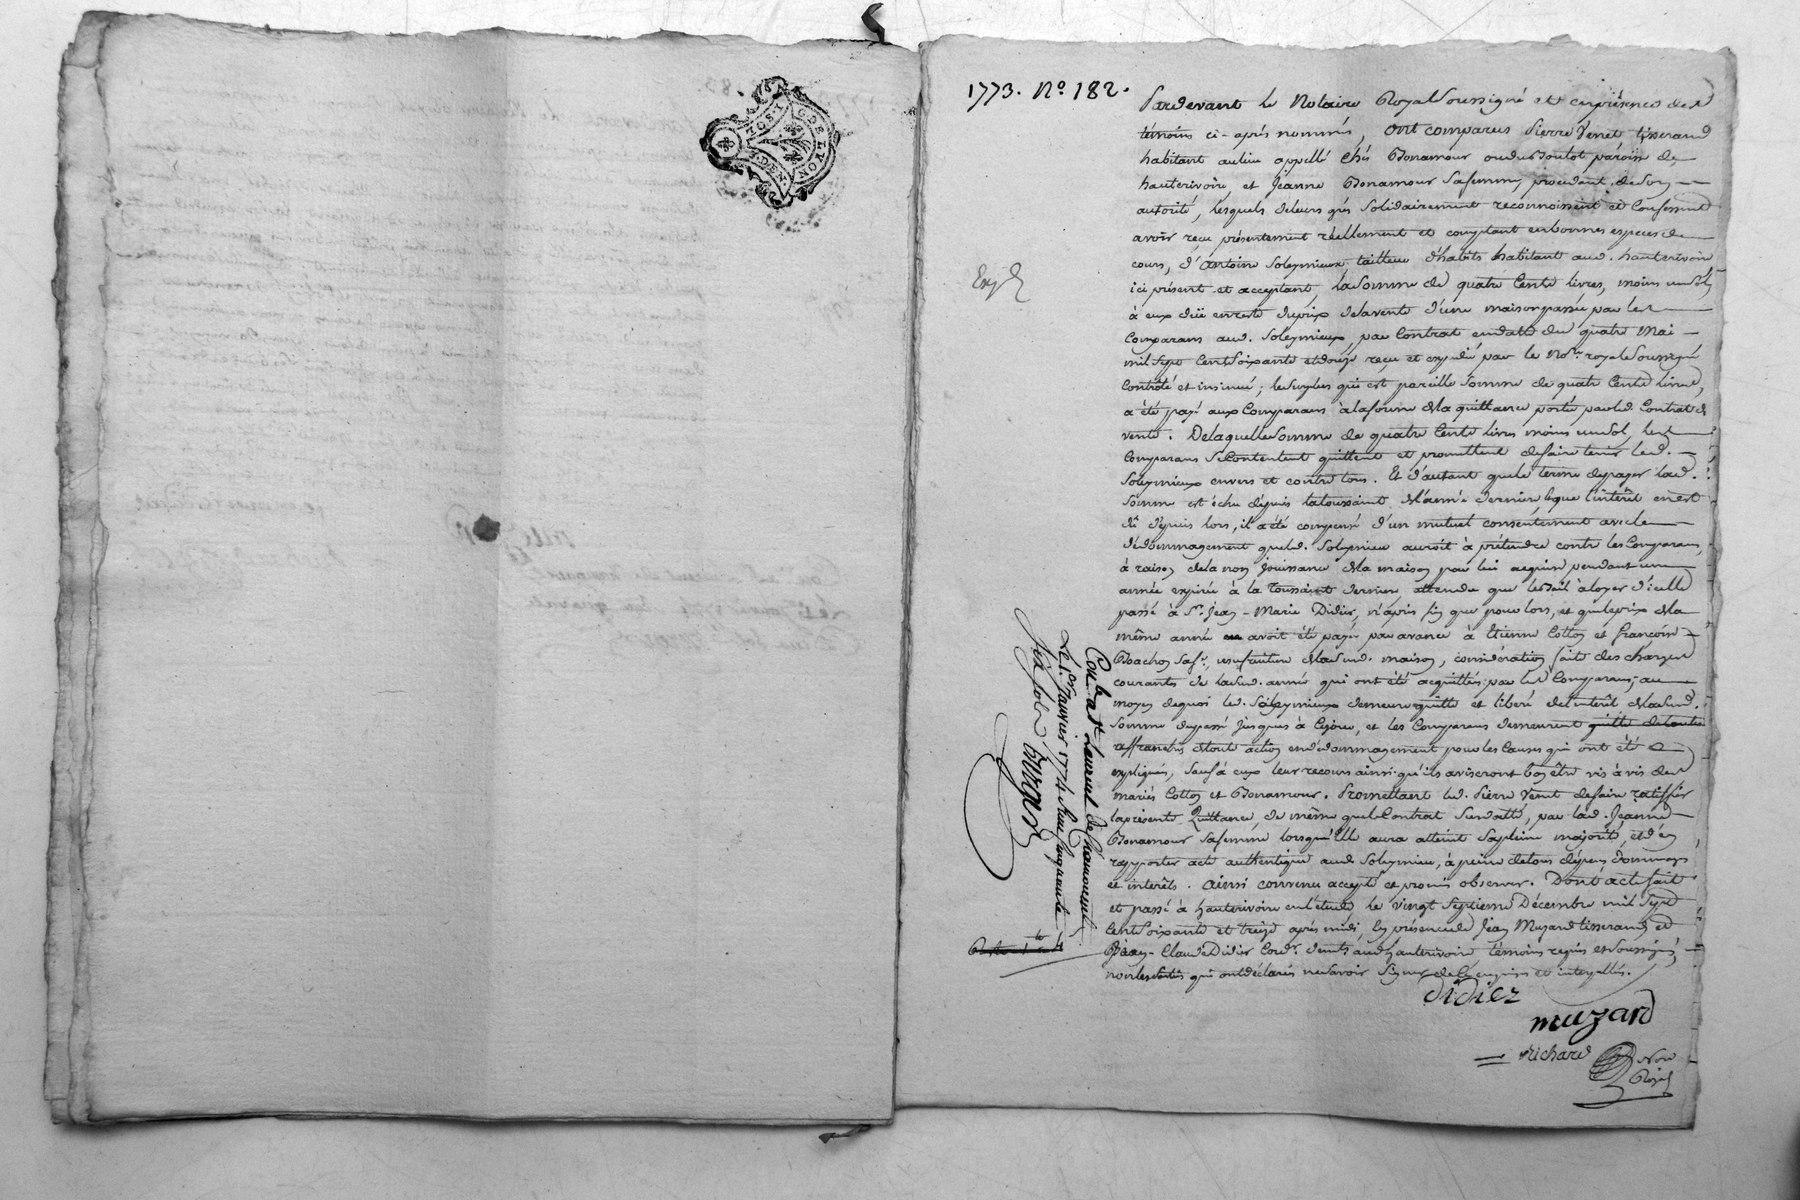 G. DE LYON
1773. No. 182.
Pardevant le Notaire Royal soussigné et en présence des
témoins ci-après nommés, ont comparus Pierre Venet tisserand
habitant au lieu appellé chés Bonamour ou du Boulot paroisse de
hauterivoire et Jeanne Bonamour sa femme, procedant de son
autorité, lesquels de leurs grés solidairement reconnoissent et confessent
avoir reçu présentement réellement et comptant en bonnes especes de
cours, d'Antoine Soleymieux tailleur d'habits habitant aud. hauterivoire
ici présent et acceptant, la somme de quatre cents livres, moins un sol,
à eux düe en reste du prix de la vente d'une maison passée par les
comparans aud. Soleymieux, par contrat en datte du quatre Mai
mil sept cent soixante et douze reçu et expédié par le No.re royal soussigné
contrôlé et insinué; le surplus qui est pareille somme de quatre cents livres,
a été payé aux comparans à la forme de la quittance portée par led. contrat de
vente. De laquelle somme de quatre cents livres moins un sol, les
comparans se contentent quittent et promettent de faire tenir led.
Soleymieux envers et contre tous. Et d'autant que le terme de payer lad.
somme est échu depuis la toussaint de l'année derniere, & que l'intérêt en est
dû depuis lors, il a été compensé d'un mutuel consentement avec le
dédommagement que led. Soleymieux auroit à prétendre contre les comparans,
à raison de la non jouissance de la maison par lui acquise pendant une
année expirée à la Toussaint derniere attendu que le bail à loyer d'icelle
passé à Sr. Jean-Marie Didier, n'a pris fin que pour lors, et que le prix de la
même année avoit été payé par avance à Etienne Cotton et françoise
Bachon sa fe., usufruitiere de lasud. maison, considération faite des charges
courantes de lasud. année qui ont été acquittées par les comparans; au
moyen de quoi led. Soleymieux demeure quitte et libéré de l'intérêt de lasud.
somme du passé jusques à ce jour, et les comparans demeurent quitte de toute
affranchis de toute action en dédommagement pour les causes qui ont été
expliqués, sauf à eux leur recours ainsi qu'ils aviseront bon être vis à vis des
mariés Cotton et Bonamour. Promettant led. Pierre Venet de faire ratiffier
la présente Quittance, de même que le contrat susdatté, par lad. Jeanne
Bonamour sa femme lorsqu'elle aura atteint sa pleine majorité, et d'en
rapporter acte authentique aud. Soleymieux, à peine de tous dépens dommages
et intérêts. Ainsi convenu accepté et promis observer. Dont acte fait
et passé à hauterivoire en l'étude le vingt septieme Décembre mil sept
cent soixante et treize après midi, en présence de Jean Muzard tisserand et
Jean-Claude Didier Cord.r demts. aud. hauterivoire témoins requis et soussignés
non les parties qui ont déclarés ne savoir signer de ce enquises et interpellés.
didiez
muzard
richard
Nore
Royal
Exp.
Con.lé à St. Laurent de Chamousset
Le 1er Janvier 1774 Reçu cinquante
six sols